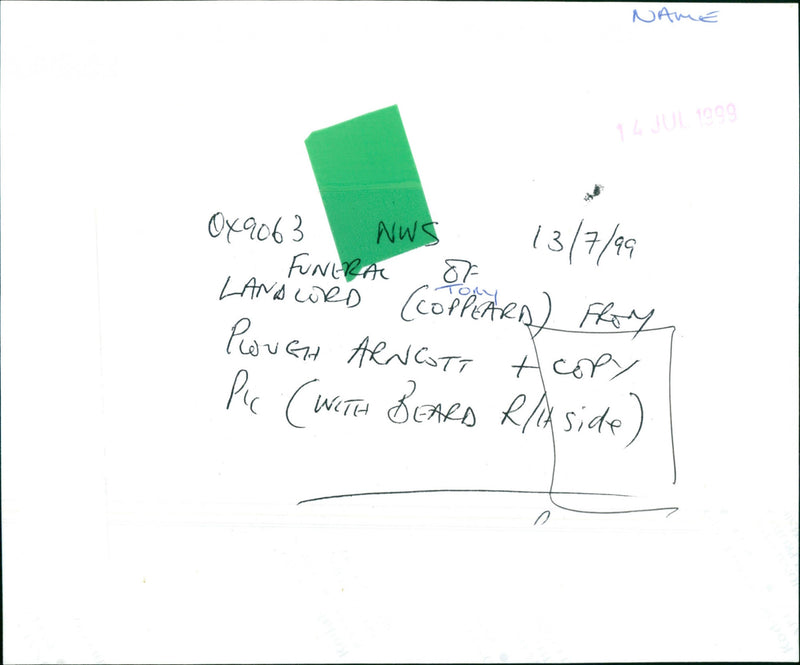 NAME
14 JUL 1999
OX9063 NWS 13/7/99
FUNERAL OF
TONY
LANDLORD (COPPEARD) FROM
PLOUGH ARNCOTT + COPY
PIC (WITH BEARD R/H side)